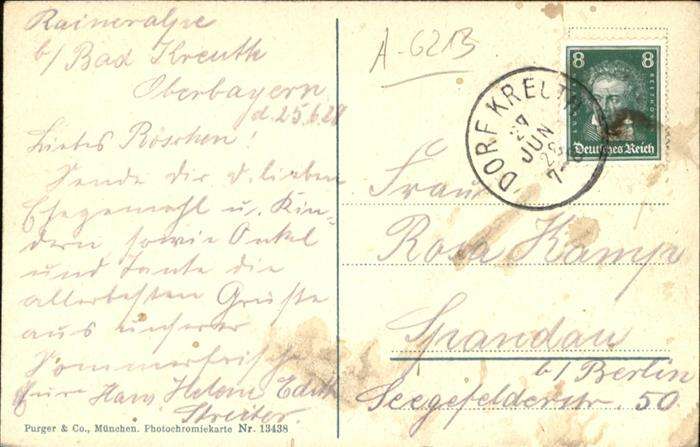 Raineralpe
b/ Bad Kreuth
Oberbayern
d. 25.6.28
Liebes Röschen!
Sende dir d. lieben
Ehegemahl u. Kin-
dern sowie Onkel
und Tante die
allerbesten Grüße
aus unserer
Sommerfrische
Eure Hans Helene Edith
Streiter.
Purger & Co., München. Photochromiekarte Nr. 13438
A-6213
DORF KREUTH
27
JUN
28
7
8 8
Deutsches Reich
Frau
Rosa Kamp
Spandau
b/ Berlin
Seegefelderstr. 50